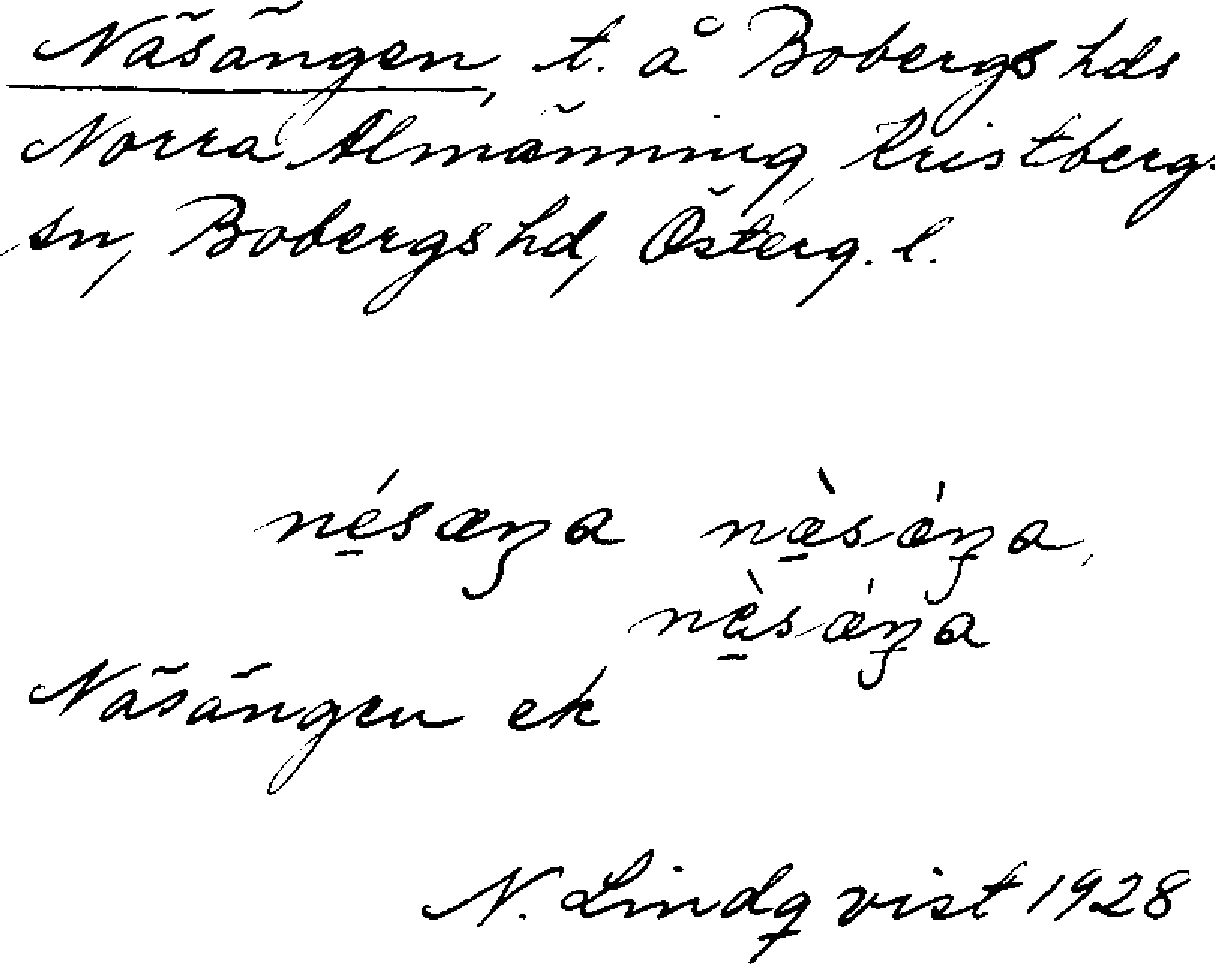 Näsängen, t. å Bobergs hds
Norra Almänning, Kristbergs
sn, Bobergs hd, Österg. l.
nę́sæŋa næ̀sǽŋa,
næ̀sǽŋa
Näsängen ek
N. Lindqvist 1928